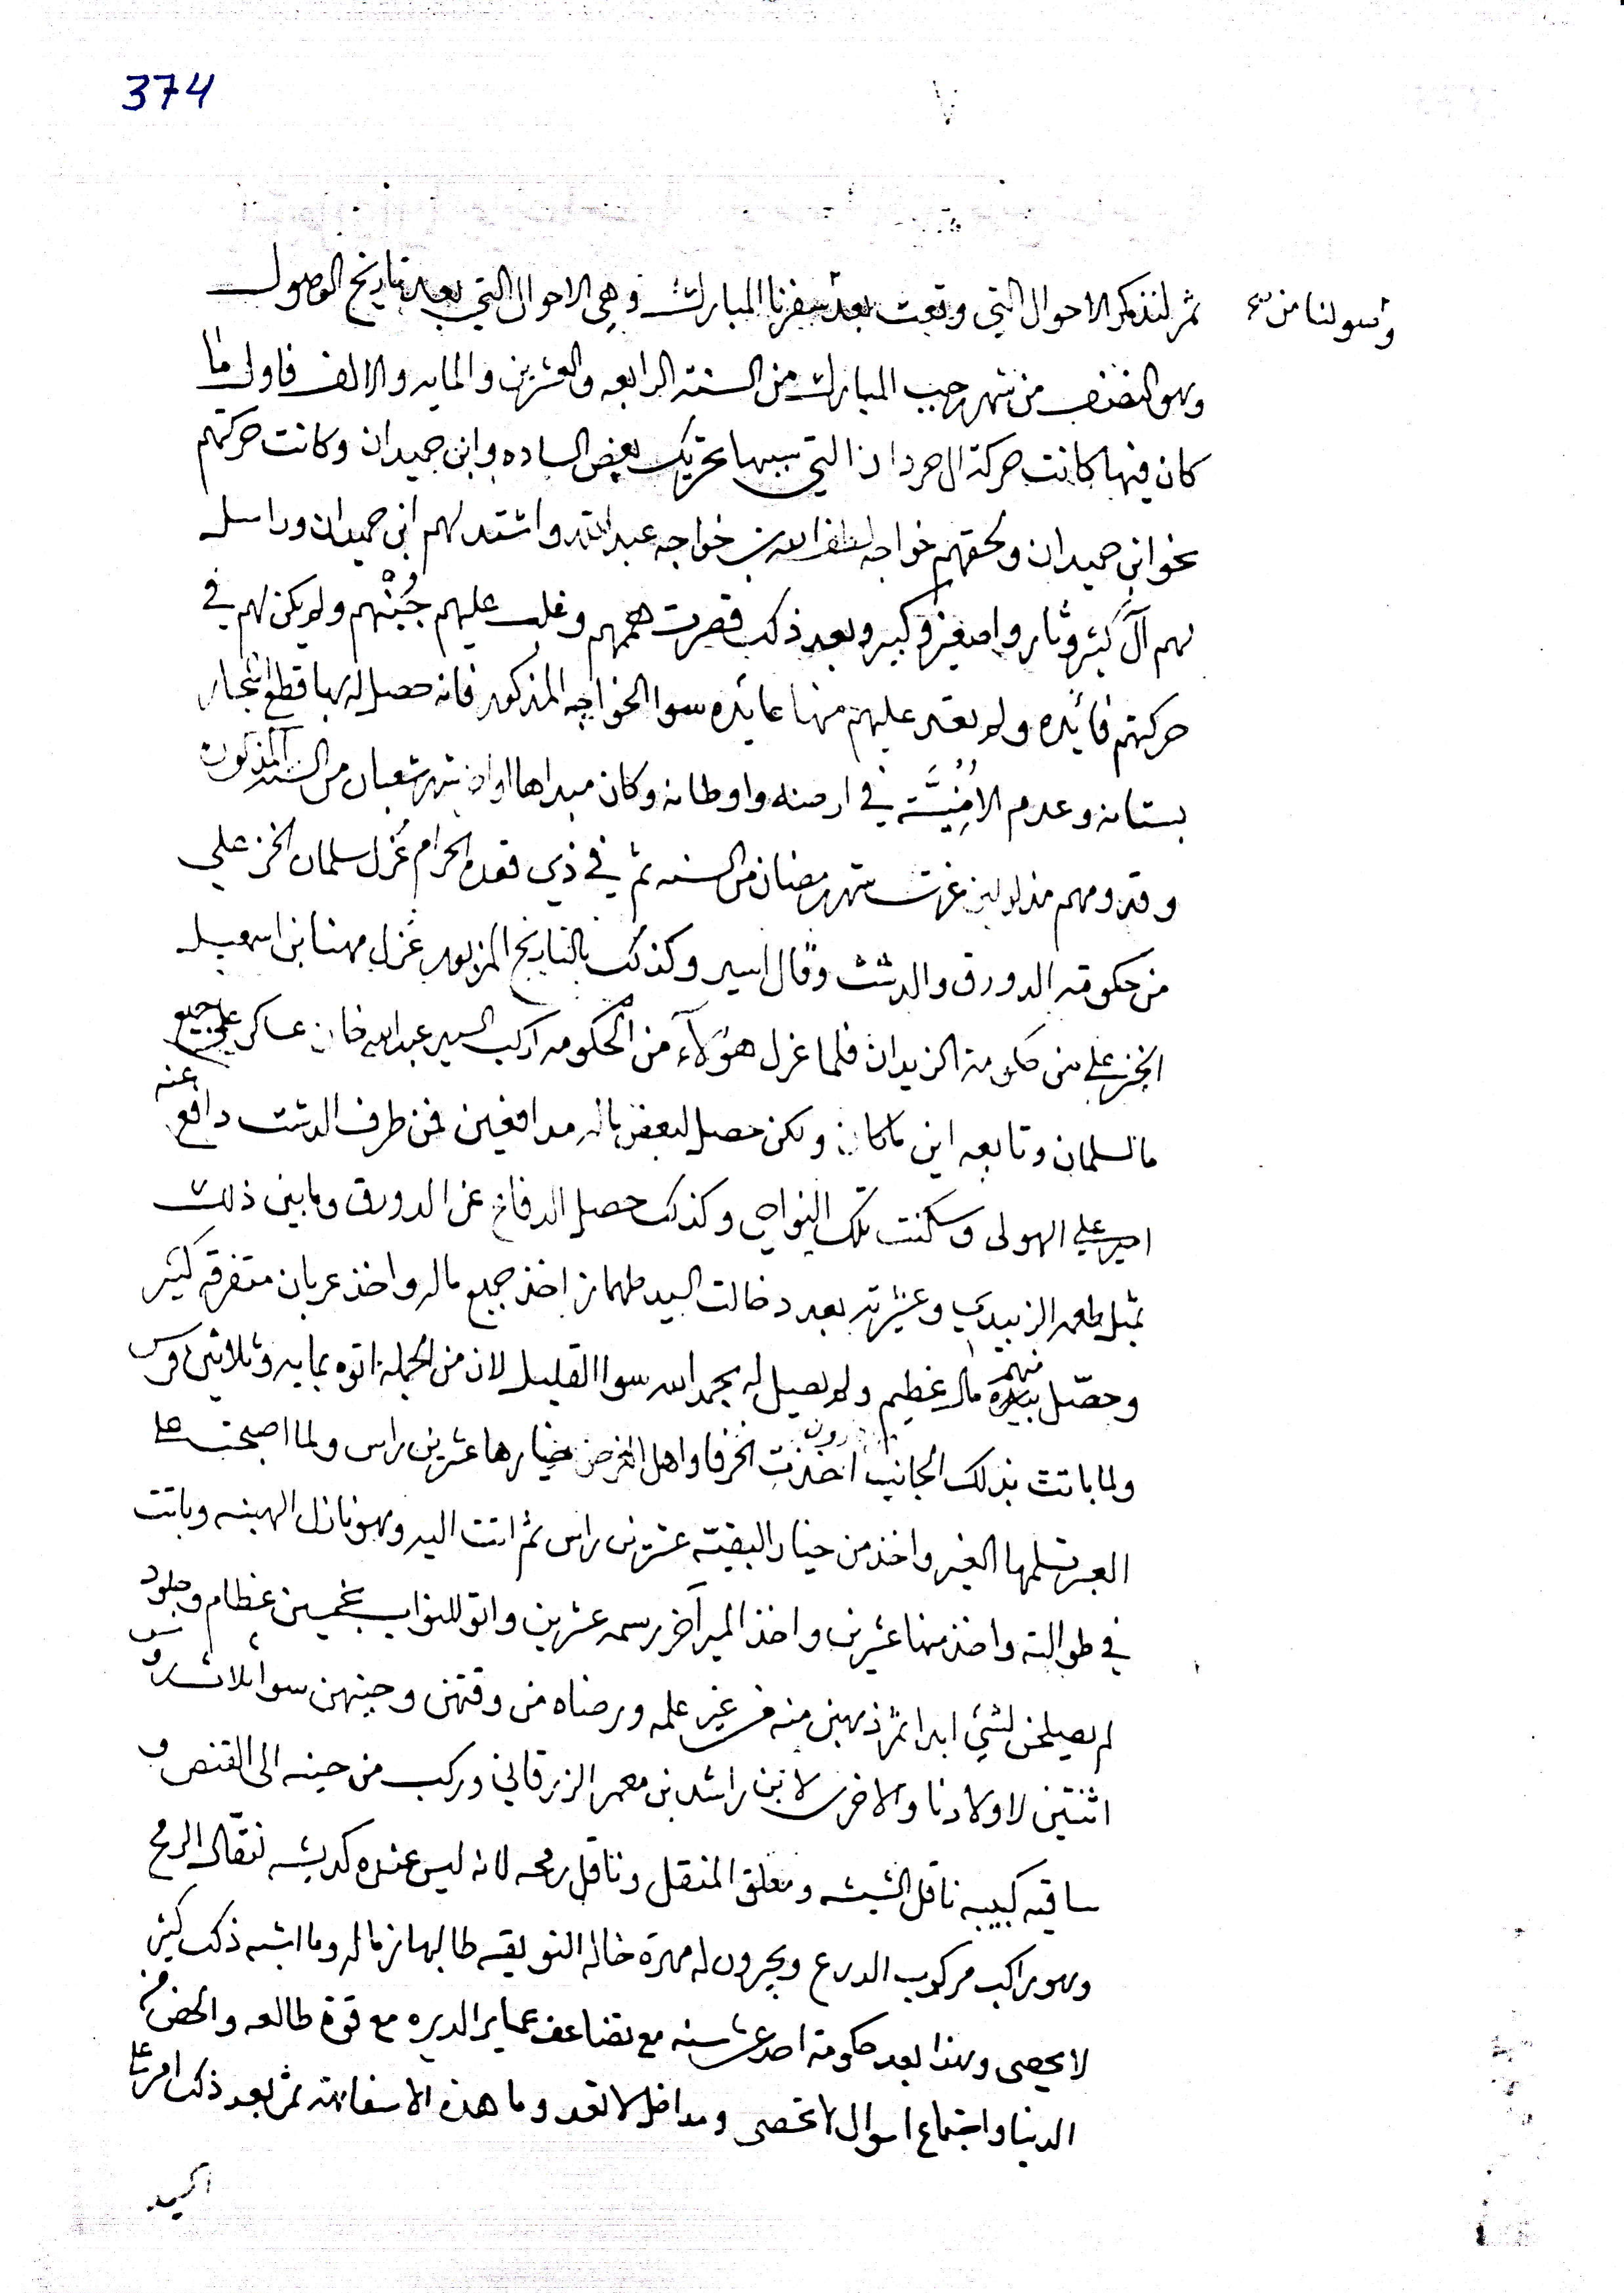 374
ثم لنذكر الاحوال التي وقعت بعد سفرنا المبارك وهي الاحوال التي بعد تاريخ الوصول
وهو النصف من شهر رجب المبارك من السنة الرابعه والعشرين والمايه والالف فاول ما
كان فيها كانت حركة ال حردان التي سببها تحريك بعض الساده وابن حميدان وكانت حركتهم
نحو ابن حميدان ولحقهم خواجه لطف الله بن خواجه عبد الله واشتد لهم ابن حميدان وراسل
لهم آل كثير وثاروا صغير وكبير وبعد ذلك قصرت هممهم وغلب عليهم جُبْنُهم ولم يكن لهم في
حركتهم فائده ولم يعد عليهم منها عايده سوا الخواجه المذكور فانه حصل له بها قطع اشجار
بستانه وعدم الامنيَّة في ارضه واوطانه وكان مبداها اوان شهر شعبان من السنة المذكورة
وقدومهم مذلولين غرت شهر رمضان من السنه ثم في ذي قعدة الحرام عُزل سلمان الخزعلي
من حكومة الدورق والدشت وقال اسير وكذلك بالتاريخ المزبور عُزل مهنا بن اسمعيل
الخزعلي من حكومة الزيدان فلما عزل هؤلآء من الحكومه اركب السيد عبد الله خان عساكر على جميع
ما لسلمان وتابعه اين ما كان ولكن حصل لبعض ماله مدافعين فمن طرف الدشت دافع عنه
امير علي الهولى وسكنت تلك النواحي وكذلك حصل الدفاع عن الدورق وما بين ذلك
مثل طعمه الزبيدي وعشيرته بعد دخالت السيد طهماز اخذ جميع ماله واخذ عربان متفرقه كثير
وحصّل بيده منهم مال عظيم ولم يصل له بحمد الله سوا القليل لان من الجمله اتوه بمايه وثلاثين فرس
ولما باتت بذلك الجانب اخذت الخرفا واهل الغرض خيارها عشرين راس ولما اصبحت على
العبر تسلمها الغير واخذ من خيار البقية عشرين راس ثم اتت اليه وهو نازل الهينه وباتت
في طوالته واخذ منها عشرين واخذ المير آخر رسمه عشرين واتو للنواب بخمسين عظام وجلود
لم يصلحن لشيء ابدا ثم ذهبن منه من غير علمه ورضاه من وقتهن وحينهن سوا ثلاث
اثنتين لاولادنا والاخرى لابن راشد بن معمر الزرقاني وركب من حينه الى القنص و
ساقيه كبيبه ناقل الشيشه ومعلق المنقل وناقل رمحه لانه ليس عنده كديشه نقال الرمح
وهو راكب مركوب الدرع ويجرون له مهرة خاله النويقه طالبها من ماله وما اشبه ذلك كثير
لا يحصى وهذا بعد حكومة احد عشر سنه مع تضاعف عماير الديره مع قوة طالعه والحض من
الدنيا واجتماع اموال لا تحصى ومداخل لا تعد وما هذه الا سفاهته ثم بعد ذلك امر على
السيد